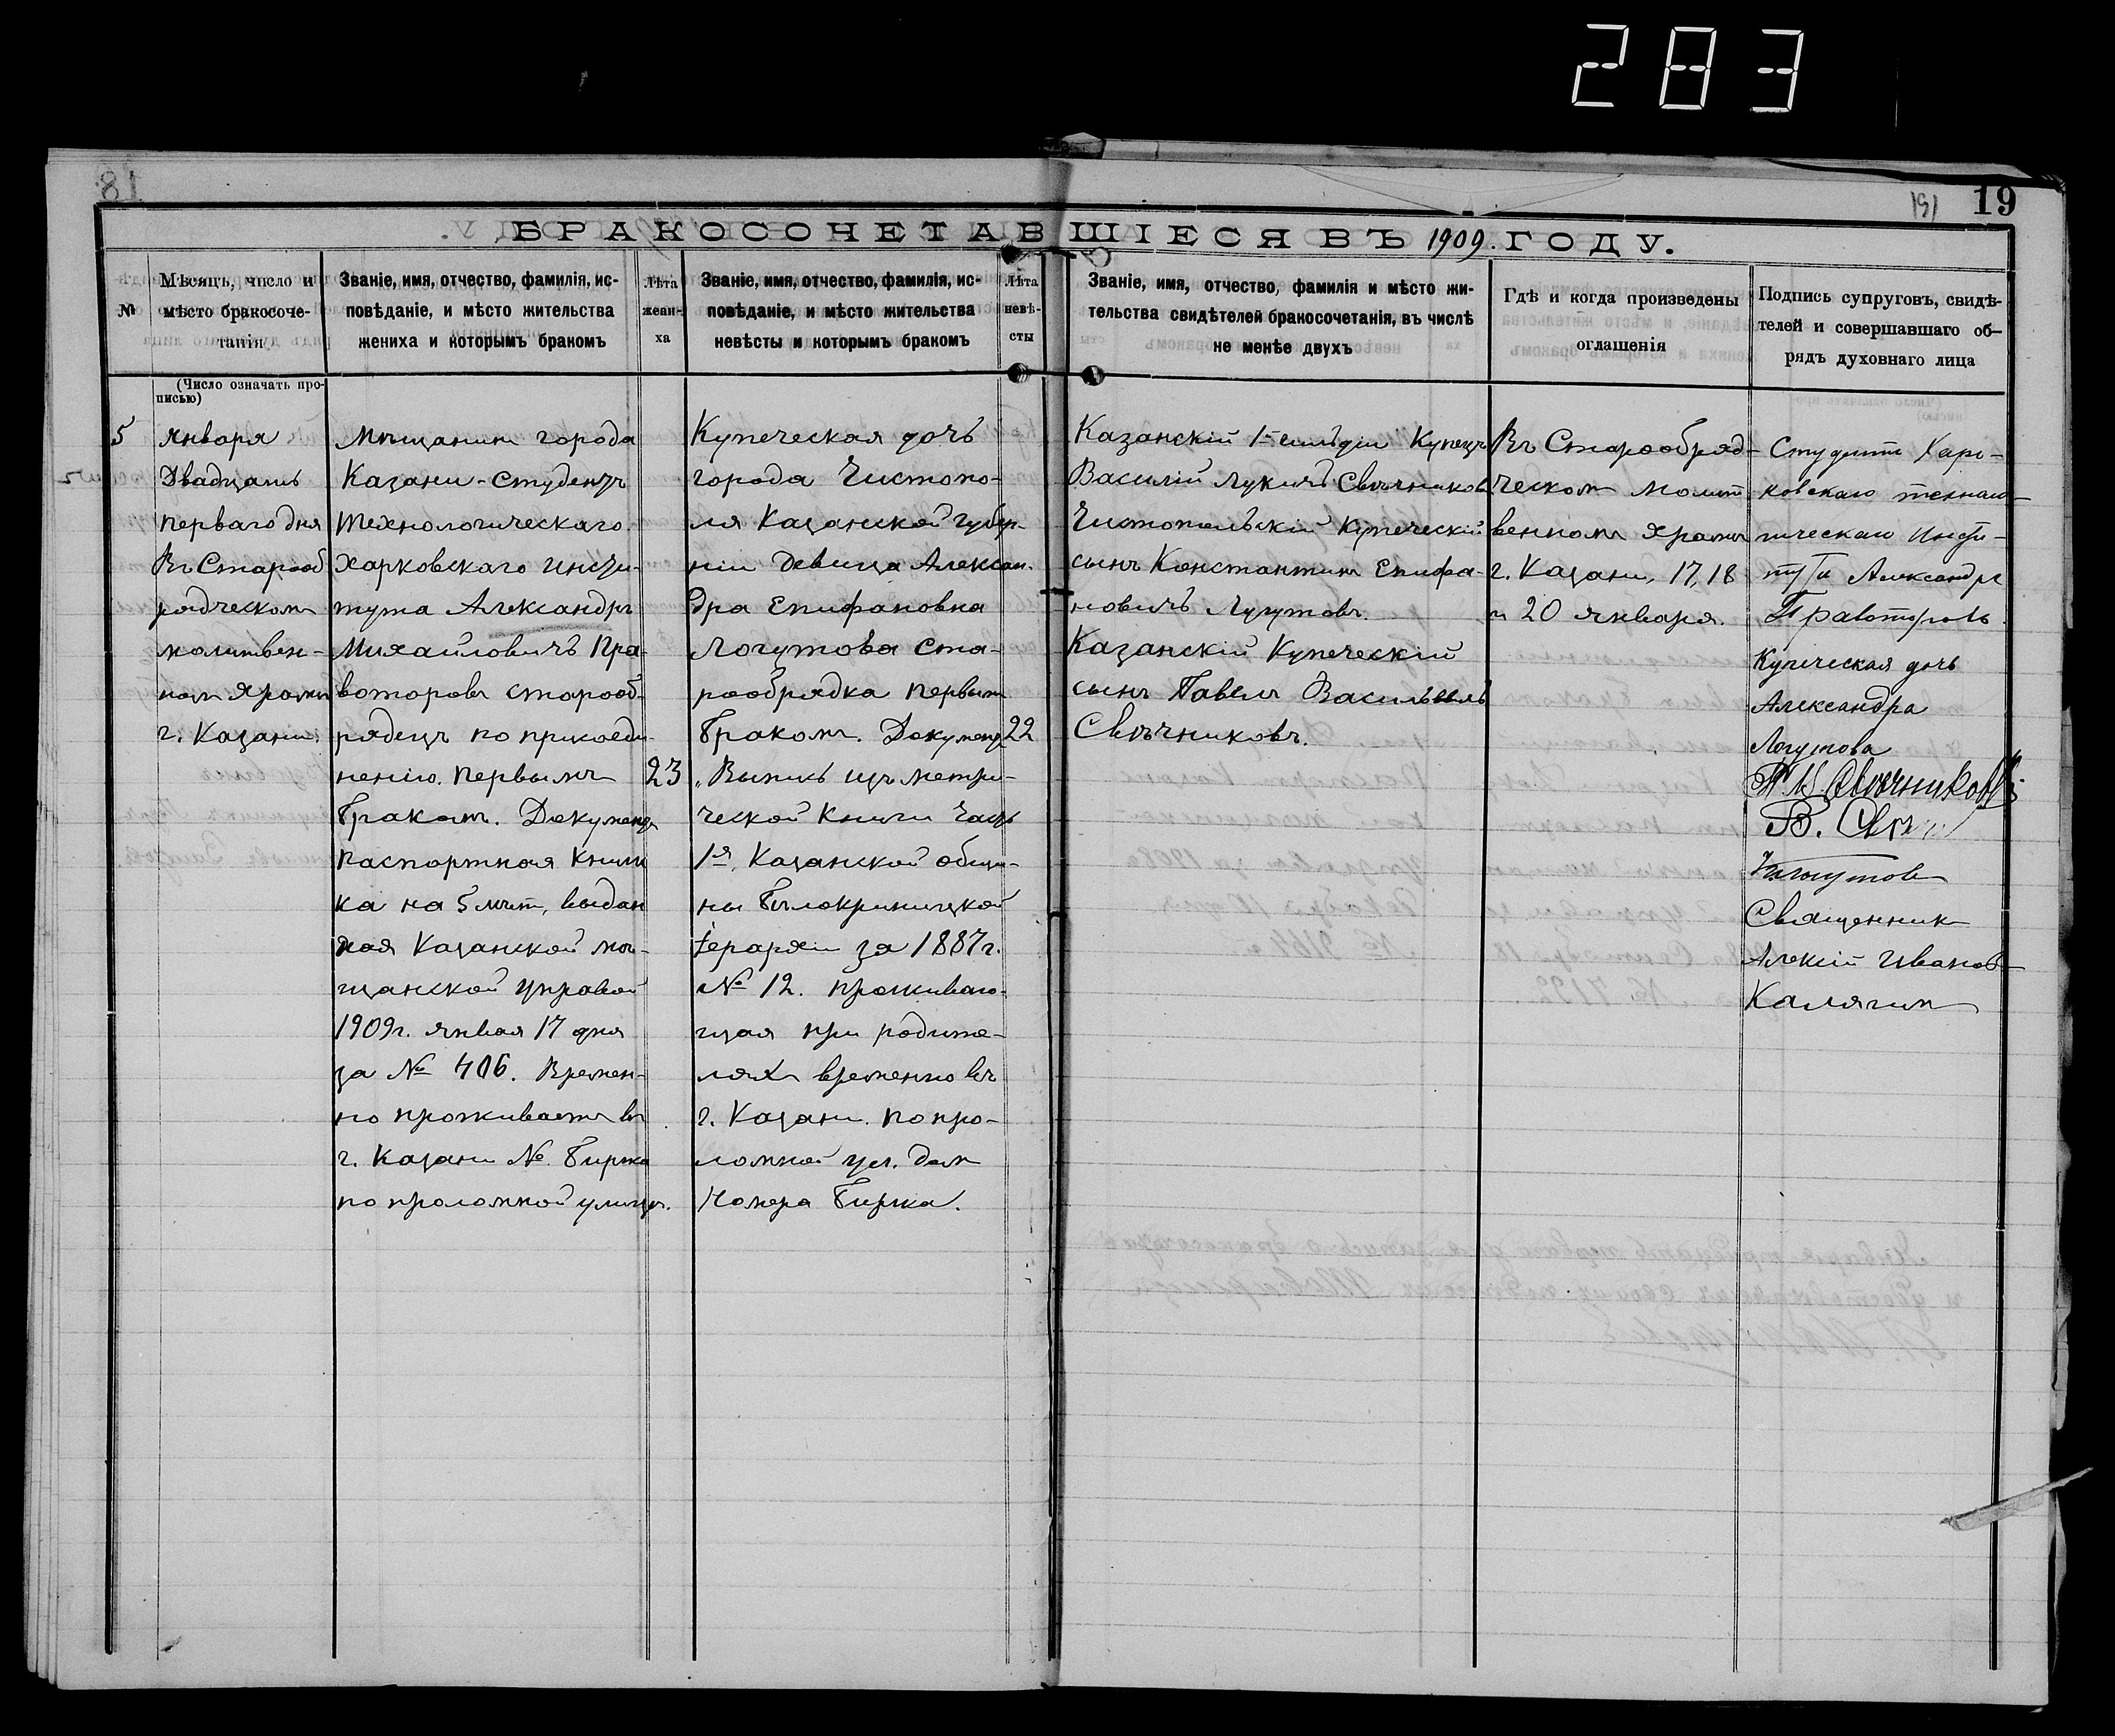 283
19
151
БРАКОСОЧЕТАВШІЕСЯ ВЪ 1909. ГОДУ.
№
Мѣсяцъ, число и
мѣсто бракосоче-
танія
Званіе, имя, отчество, фамилія, ис-
повѣданіе, и мѣсто жительства
жениха и которымъ бракомъ
Лѣта
жени-
ха
Званіе, имя, отчество, фамилія, ис-
повѣданіе, и мѣсто жительства
невѣсты и которымъ бракомъ
Лѣта
невѣ-
сты
Званіе, имя, отчество, фамилія и мѣсто жи-
тельства свидѣтелей бракосочетанія, въ числѣ
не менѣе двухъ
Гдѣ и когда произведены
оглашенія
Подпись супруговъ, свидѣ-
телей и совершавшаго об-
рядъ духовнаго лица
(Число означать про-
писью)
5
Января
Двадцать
перваго дня
Въ Старооб
рядческомъ
молитвен-
номъ храмѣ
г. Казани.
Мѣщанинъ города
Казани - Студентъ
Технологическаго
Харковскаго Инсти-
тута Александръ
Михайловичъ Пра-
воторовъ старооб-
рядецъ по присоеди-
ненію. Первымъ
бракомъ. Документъ
паспортная книж
ка на 5 лѣтъ, выдан
ная Казанской мѣ-
щанской Управой
1909г. Января 17 дня
за № 406. Времен-
но проживаетъ въ
г. Казани № Биржа
по проломной улицѣ.
23
Купеческая дочь
города Чистопо-
ля Казанской губер-
ніи Девица Алексан-
дра Епифановна
Логутова Ста-
рообрядка первымъ
бракомъ. Документъ
„Выпись изъ метри-
ческой Книги Часть
1я. Казанской общи-
ны Бѣлокриницкой
Іерархіи за 1887г.
№ 12. проживаю-
щая при родите-
ляхъ временно въ
г. Казани. по про-
ломной ул. дом
Номера Биржа.
22
Казанскій 1-гильдіи Купецъ
Василій Лукичъ Свѣчниковъ
Чистопольскій Купеческій
сынъ Константинъ Епифа-
новичъ Логутовъ.
Казанскій Купеческій
сынъ Павелъ Васильевичъ
Свѣчниковъ.
Въ Старообряд-
ческомъ молит
венномъ храмѣ
г. Казани, 17, 18
и 20 января.
Студентъ Харь-
ковскаго технало-
гическаго Инсти-
тута Александръ
Правоторовъ
Купеческая дочь
Александра
Логутова
П. В. Свѣчниковъ
В. Свѣч
Логутов
Священник
Алексій Иванов
Калягин